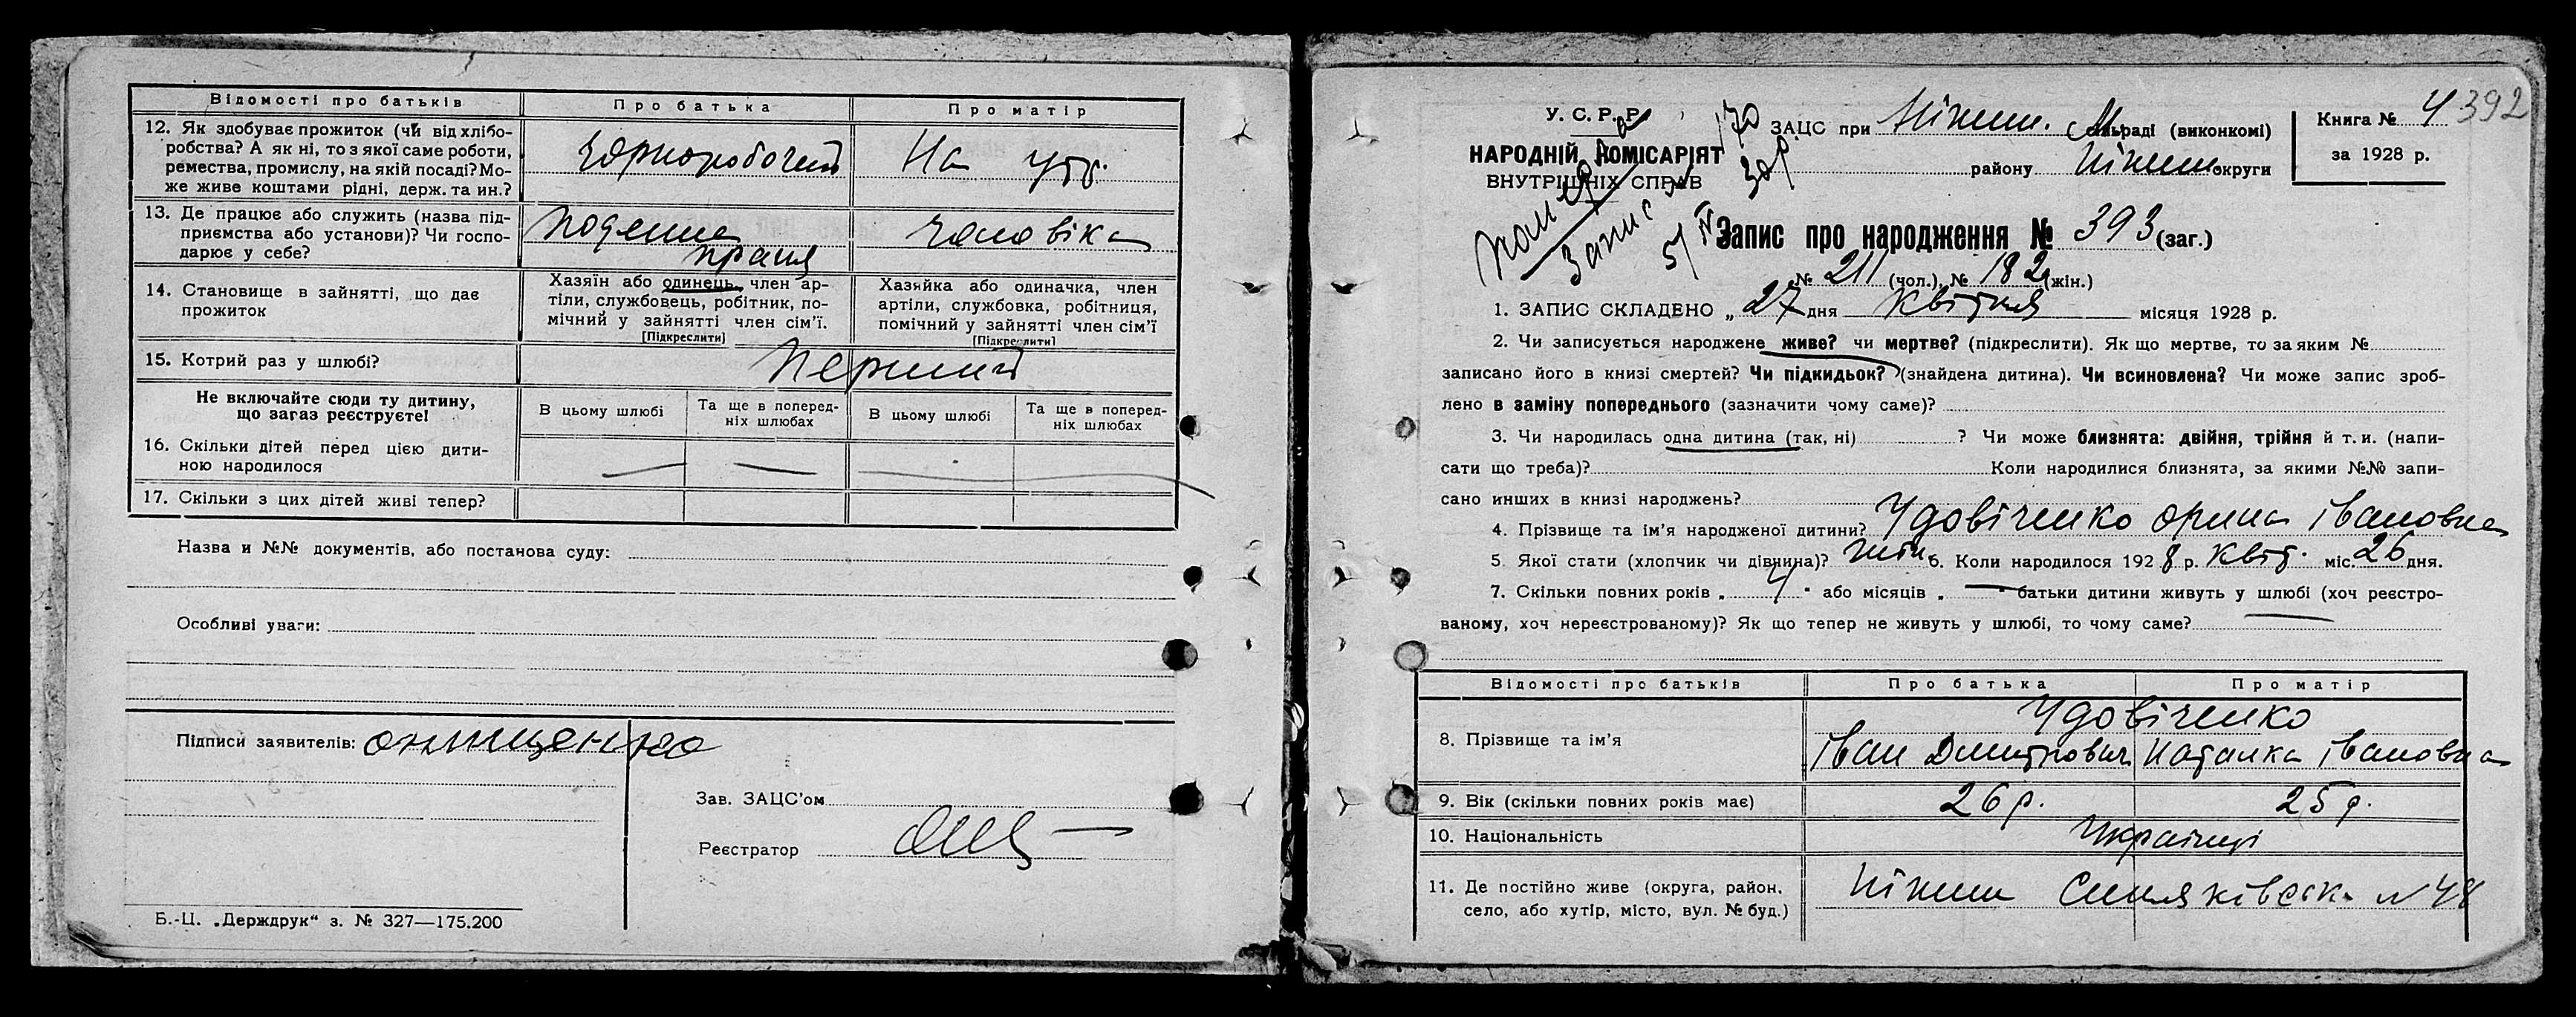 Відомості про батьків Про батька Про матір
12. Як здобуває прожиток (чи від хлібо-
робства? А як ні, то з якої саме роботи,
ремества, промислу, на якій посаді? Мо-
же живе коштами рідні, держ. та ин.?
Чорноробочий На утр.
13. Де працює або служить (назва під-
приємства або установи)? Чи госпо-
дарює у себе?
Поденна
праця
чоловіка
14. Становище в зайнятті, що дає
прожиток
Хазяїн або одинець, член ар-
тіли, службовець, робітник, по-
мічний у зайнятті член сім'ї.
[Підкреслити]
Хазяйка або одиначка, член
артіли, службовка, робітниця,
помічний у зайнятті член сім'ї
[Підкреслити]
15. Котрий раз у шлюбі? Перший
Не включайте сюди ту дитину,
що загаз реєструєте!
В цьому шлюбі
Та ще в поперед-
ніх шлюбах
В цьому шлюбі
Та ще в поперед-
ніх шлюбах
16. Скільки дітей перед цією дити-
ною народилося
17. Скільки з цих дітей живі тепер?
Назва и №№ документів, або постанова суду:
Особливі уваги:
Підписи заявителів: Онищенко
Зав. ЗАЦС'ом
Реєстратор
Б.-Ц. „Держдрук" з. № 327—175.200
У. С. Р. Р.
НАРОДНІЙ КОМІСАРІЯТ
ВНУТРІШНІХ СПРАВ
Померла
Запис № 170
5/IV 30 р.
ЗАЦС при Ніжин. М. сільраді (виконкомі)
району Ніжин округи
Книга № 4
за 1928 р.
392
Запис про народження № 393 (заг.)
№ 211 (чол.), № 182 (жін.)
1. ЗАПИС СКЛАДЕНО „ 27 дня квітня місяця 1928 р.
2. Чи записується народжене живе? чи мертве? (підкреслити). Як що мертве, то за яким №
записано його в книзі смертей? Чи підкидьок? (знайдена дитина). Чи всиновлена? Чи може запис зроб-
лено в заміну попереднього (зазначити чому саме)?
3. Чи народилась одна дитина (так, ні) ? Чи може близнята: двійня, трійня й т. и. (напи-
сати що треба)? Коли народилися близнята, за якими №№ запи-
сано инших в книзі народжень?
4. Прізвище та ім'я народженої дитини? Удовіченко Орина Івановна
5. Якої стати (хлопчик чи дівчина)? жін. 6. Коли народилося 1928 р. квіт. міс. 26 дня.
7. Скільки повних років „ 4 " або місяців „ — " батьки дитини живуть у шлюбі (хоч реєстро-
ваному, хоч нереєстрованому)? Як що тепер не живуть у шлюбі, то чому саме? —
Відомості про батьків Про батька Про матір
8. Прізвище та ім'я
Удовіченко
Іван Дмитрович Наталка Івановна
9. Вік (скільки повних років має) 26 р. 25 р.
10. Національність Українці
11. Де постійно живе (округа, район,
село, або хутір, місто, вул. № буд.)
Ніжин Синяківська № 48